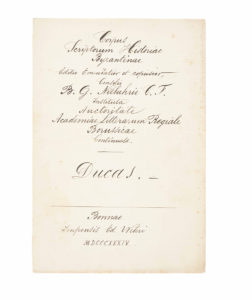 Corpus
Scriptorum Historiae
Byzantinae
Editio Emendatior et copiosior
Consilio
B. G. Niebuhrii C. F.
Instituta
Auctoritate
Academiae Litterarum Regiae
Borussicae
Continuata
Ducas. —
Bonnae
Impensis Ed. Weberi
MDCCCXXXIV.